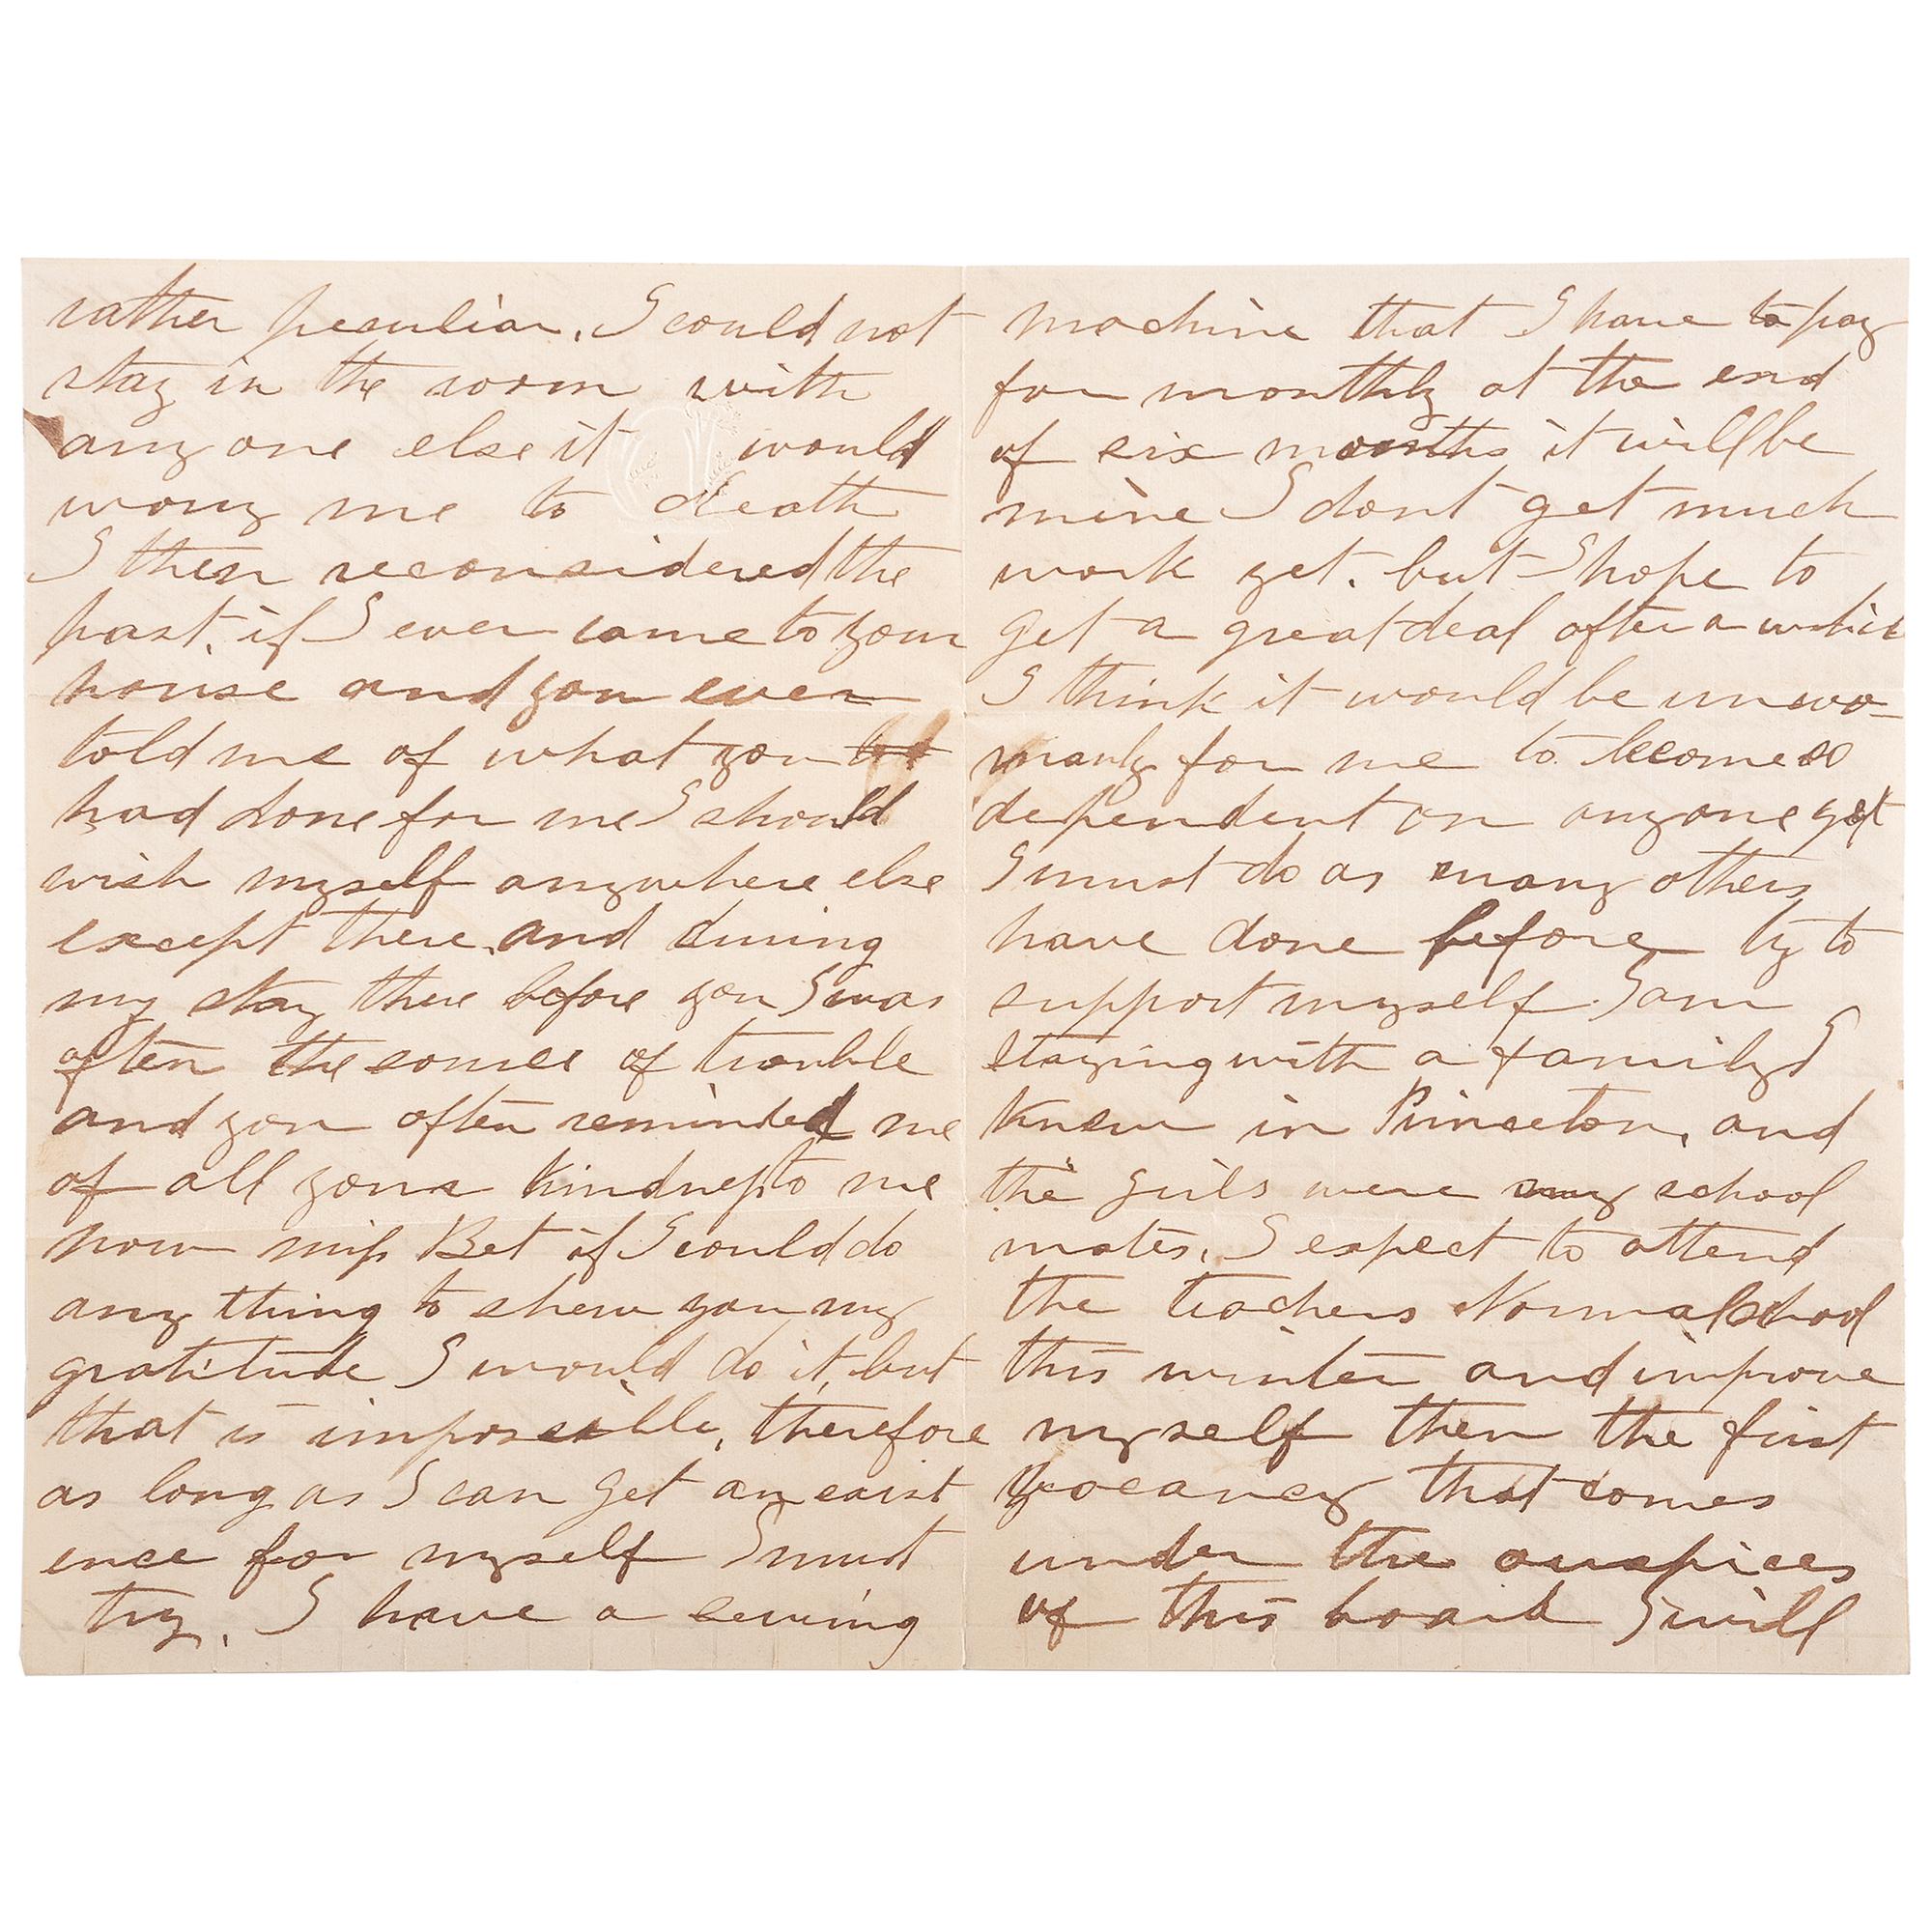 rather peculiar. I could not
stay in the room with
any one else it would
worry me to death
I then reconsidered the
past, if I ever came to your
house and you ever
told me of what you
had done for me I should
wish myself anywhere else
except there, and during
my stay there before you I was
often the source of trouble
and you often reminded me
of all your kindness to me
now miss Bet if I could do
any thing to shew you my
gratitude I would do it, but
that is impossible, therefore
as long as I can get an exist
ence for myself I must
try. I have a sewing
machine that I have to pay
for monthly at the end
of six months it will be
mine I dont get much
work yet. but I hope to
get a great deal after a while
I think it would be unwo-
manly for me to become so
dependent on anyone yet
I must do as many others
have done before try to
support myself. I am
staying with a family I
knew in Princeton, and
the girls were my school
mates. I expect to attend
the teachers Normal school
this winter and improve
myself then the first
vacancy that comes
under the auspices
of this board I will